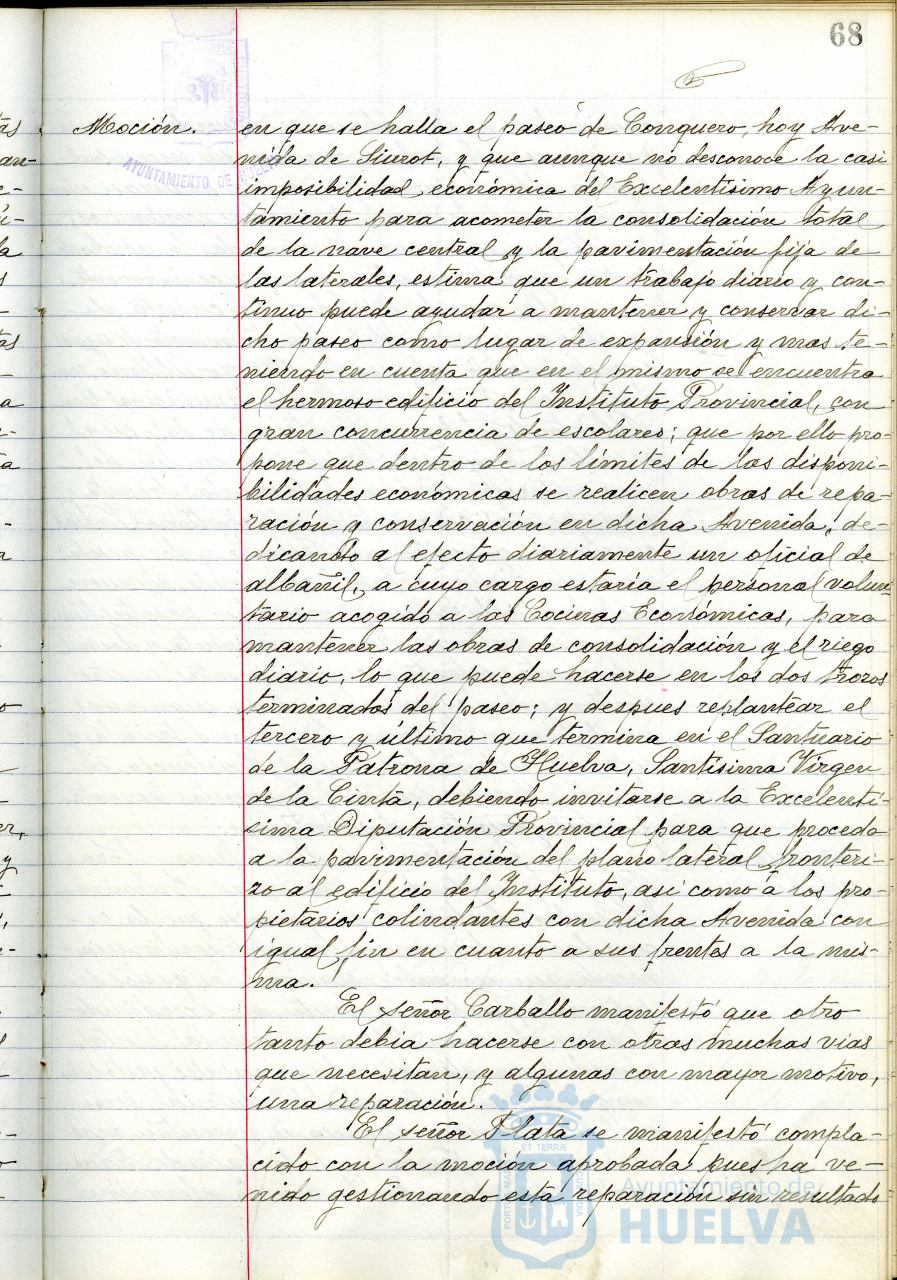 68
Moción.
en que se halla el paseo de Conquero, hoy Ave-
nida de Siurot, y que aunque no desconoce la casi
imposibilidad económica del Excelentísimo Ayun-
tamiento para acometer la consolidación total
de la nave central y la pavimentación fija de
las laterales, estima que un trabajo diario y con-
tínuo puede ayudar a mantener y conservar di-
cho paseo como lugar de expansión y mas te-
niendo en cuenta que en el mismo se encuentra
el hermoso edificio del Instituto Provincial, con
gran concurrencia de escolares; que por ello pro-
pone que dentro de los límites de las disponi-
bilidades económicas se realicen obras de repa-
ración y conservación en dicha Avenida, de-
dicando al efecto diariamente un oficial de
albañil, a cuyo cargo estaría el personal volun-
tario acogido a las Cocinas Económicas, para
mantener las obras de consolidación y el riego
diario, lo que puede hacerse en los dos trozos
terminados del paseo; y despues replantear el
tercero y último que termina en el Santuario
de la Patrona de Huelva, Santísima Virgen
de la Cinta, debiendo invitarse a la Excelentí-
sima Diputación Provincial para que proceda
a la pavimentación del plano lateral fronteri-
zo al edificio del Instituto, así como a los pro-
pietarios colindantes con dicha Avenida con
igual fin en cuanto a sus frentes a la mis-
ma.
El señor Carballo manifestó que otro
tanto debia hacerse con otras muchas vías
que necesitan, y algunas con mayor motivo,
una reparación.
El señor Plata se manifestó compla-
cido con la moción aprobada, pues ha ve-
nido gestionando esta reparación sin resultado
AYUNTAMIENTO DE HUELVA
Ayuntamiento de
HUELVA